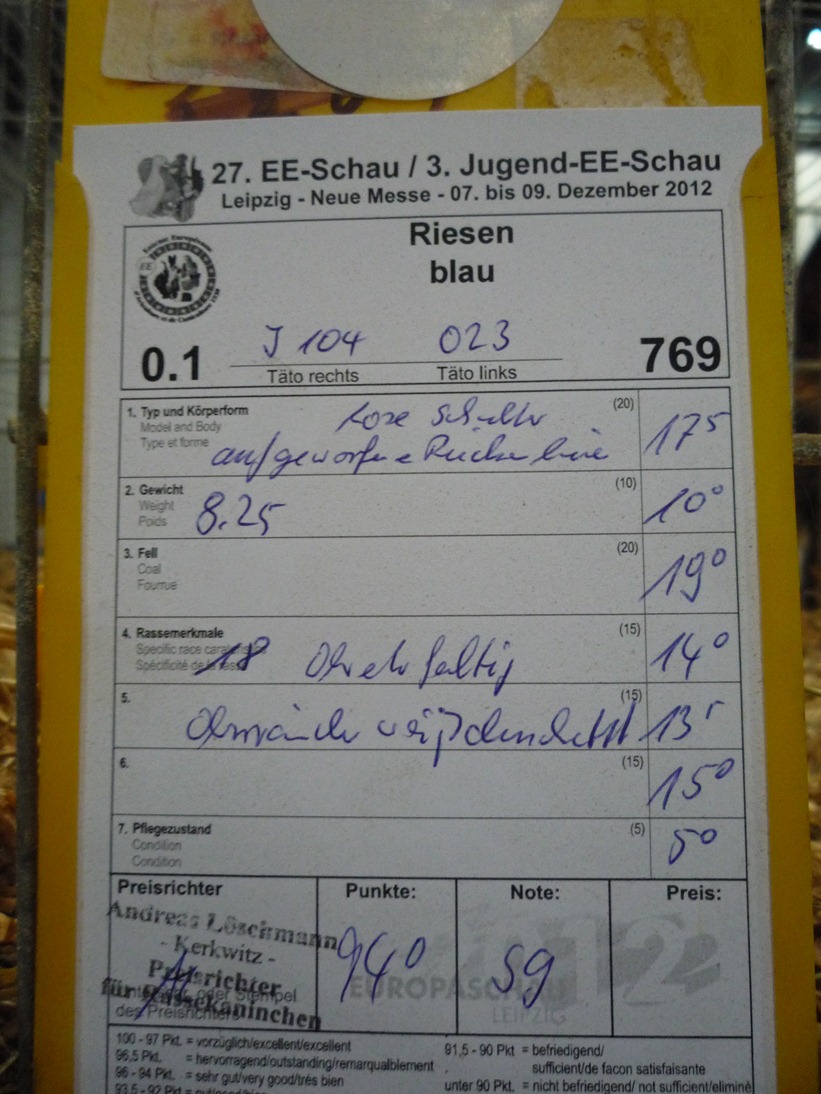 27. EE-Schau / 3. Jugend-EE-Schau
Leipzig - Neue Messe - 07. bis 09. Dezember 2012
Riesen
blau
EE
J 104 023
0.1 Täto rechts Täto links 769
1. Typ und Körperform (20)
Model and Body lose Schulter
Type et forme aufgeworfene Rückenlinie 17⁵
2. Gewicht (10)
Weight 8.25 10⁰
Poids
3. Fell (20)
Coal
Fourrue 19⁰
4. Rassemerkmale (15)
Specific race 18 14⁰
Spécificité de
5. (15)
13⁵
6. (15)
15⁰
7. Pflegezustand (5)
Condition 5⁰
Condition
Preisrichter Punkte: Note: Preis:
Andreas Löschmann
- Kerkwitz - 94⁰ sg
Preisrichter
für Rassekaninchen
oder Stempel
des Preisrichters
EUROPASCHAU
LEIPZIG
100 - 97 Pkt. = vorzüglich/excellent/excellent
96,5 Pkt. = hervorragend/outstanding/remarqualblement
96 - 94 Pkt. = sehr gut/very good/très bien
93,5 - 92 Pkt
91,5 - 90 Pkt = befriedigend/
sufficient/de facon satisfaisante
unter 90 Pkt. = nicht befriedigend/ not sufficient/eliminé